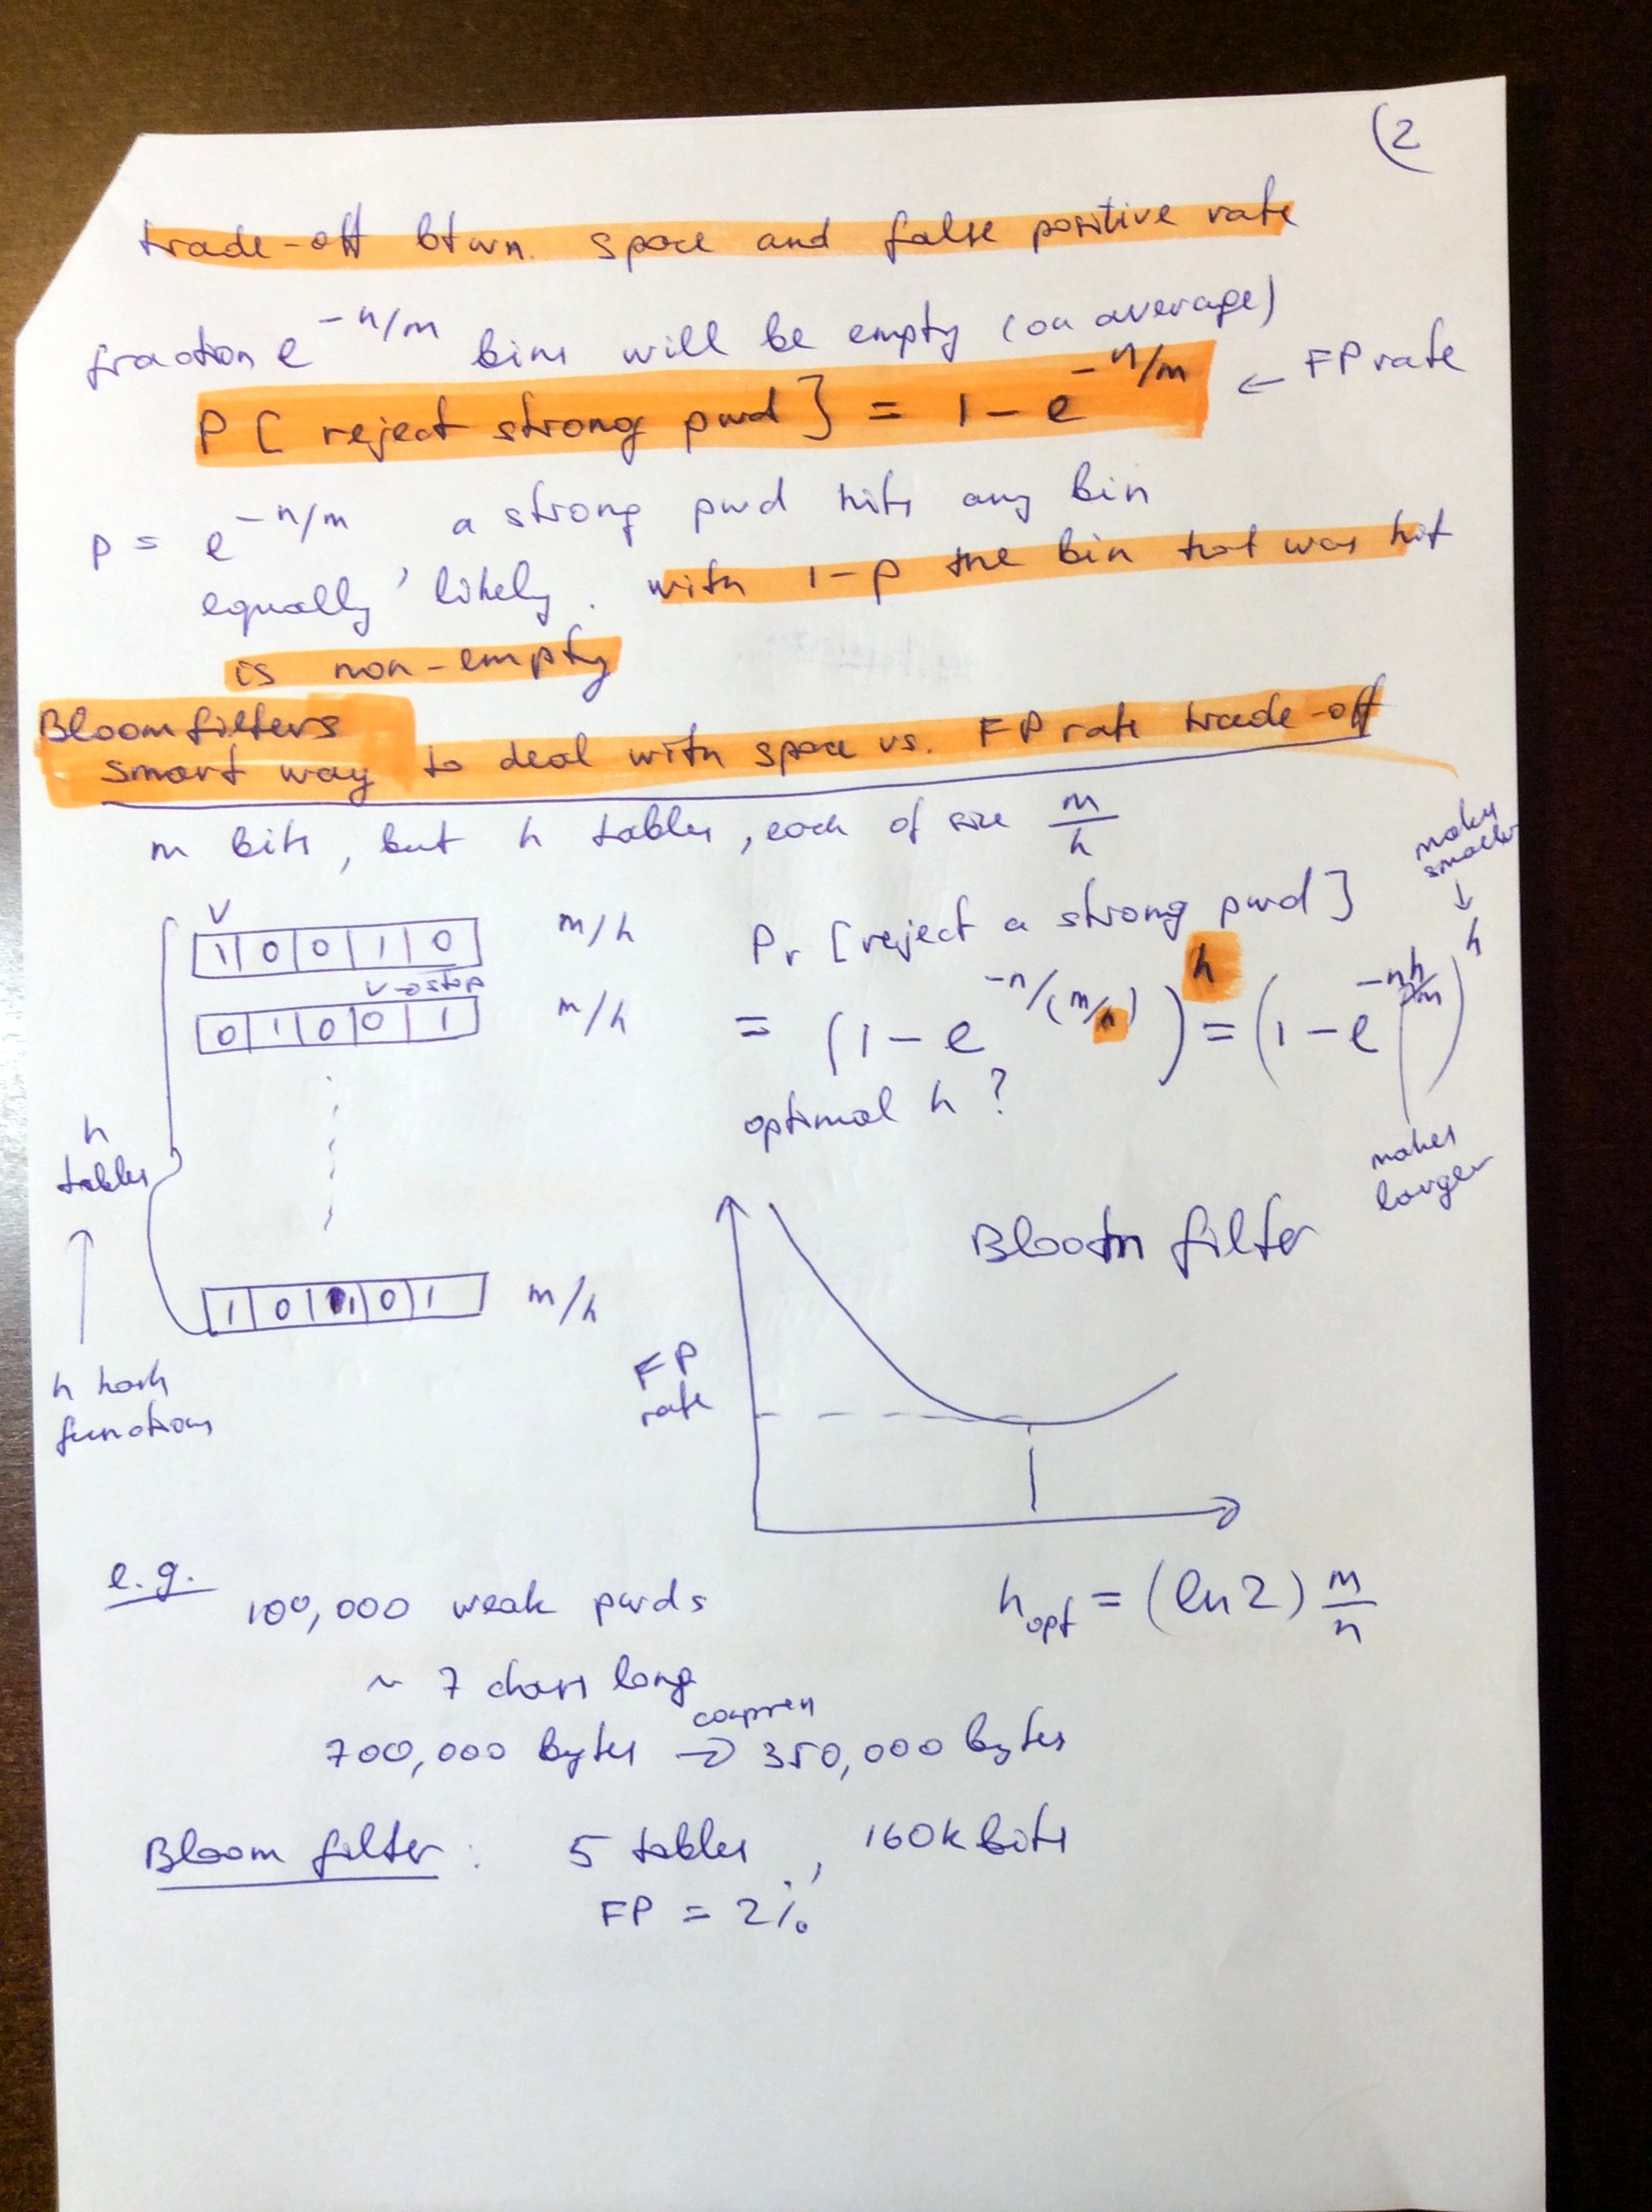 (2
trade-off btwn. space and false positive rate
fraction e^-n/m bins will be empty (on average)
P [ reject strong pwd ] = 1 - e^-n/m ← FP rate
p = e^-n/m , a strong pwd hits any bin
equally likely. with 1-p the bin that was hit
is non-empty
Bloom filters
smart way to deal with space vs. FP rate trade-off
m bits, but h tables, each of size m/h
makes
smaller
↓
V
1 0 0 1 0 m/h
V → stop
0 1 0 0 1 m/h
h
tables
1 0 1 0 1 m/h
h hash
functions
Pr [reject a strong pwd]
= (1 - e^-n/(m/h))^h = (1 - e^-nh/m)^h
optimal h ?
makes
larger
Bloom filter
FP
rate
h_opt = (ln 2) m/n
e.g.
100,000 weak pwds
~ 7 chars long
compress
700,000 bytes → 350,000 bytes
Bloom filter : 5 tables , 160k bits
FP = 2%